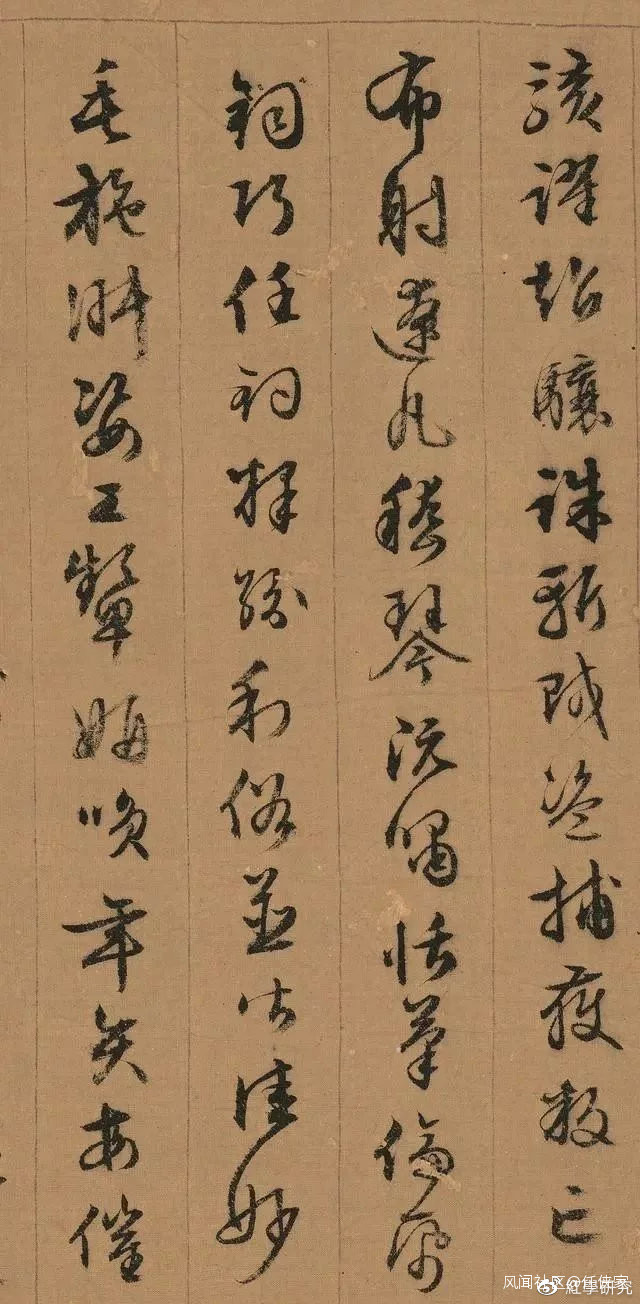 駭躍超驤誅斬賊盜捕獲叛亡
布射遼丸嵇琴阮嘯恬筆倫帋
鈞巧任釣釋紛利俗並皆佳妙
毛施淑姿工顰妍咲年矢每催
风闻社区
@紅學研究